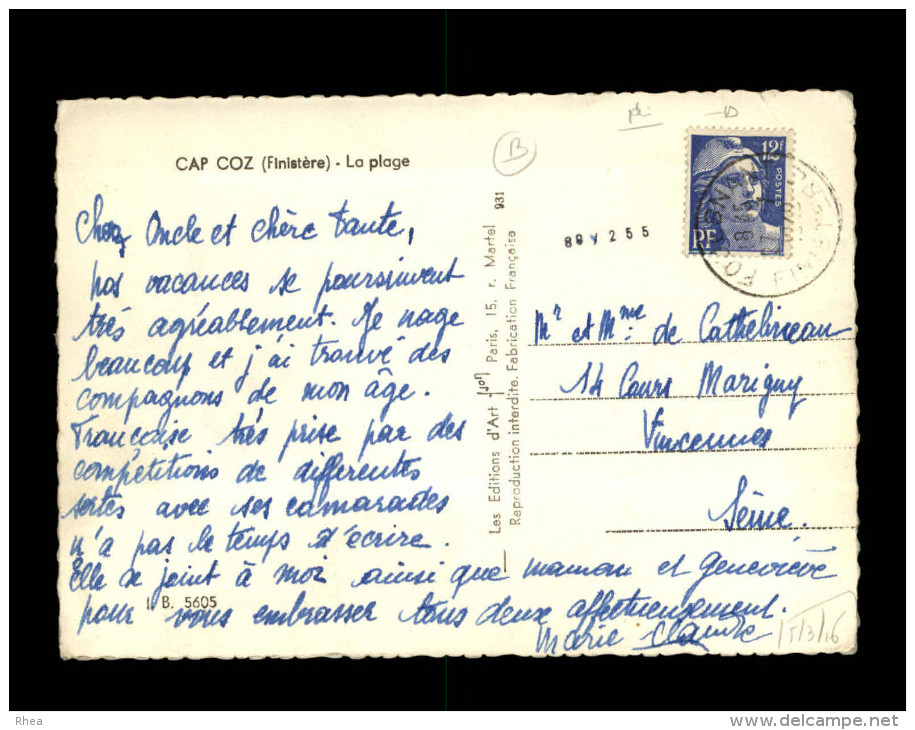 CAP COZ (Finistère) - La plage
Cher Oncle et chère tante,
nos vacances se poursuivent
très agréablement. Je nage
beaucoup et j'ai trouvé des
compagnons de mon âge.
Françoise très prise par des
compétitions de différentes
sortes avec ses camarades
n'a pas le temps d'écrire.
Elle se joint à moi ainsi que maman et Geneviève
pour vous embrasser tous deux affectueusement.
Marie Claude
I. B. 5605
Les Editions d'Art Jos Paris, 15. r. Martel 931
Reproduction interdite. Fabrication Française
B
12F
POSTES
RF
FINISTERE
Mr et Mme de Cathelineau
14 Cours Marigny
Vincennes
Seine.
Rhea
www.delcampe.net